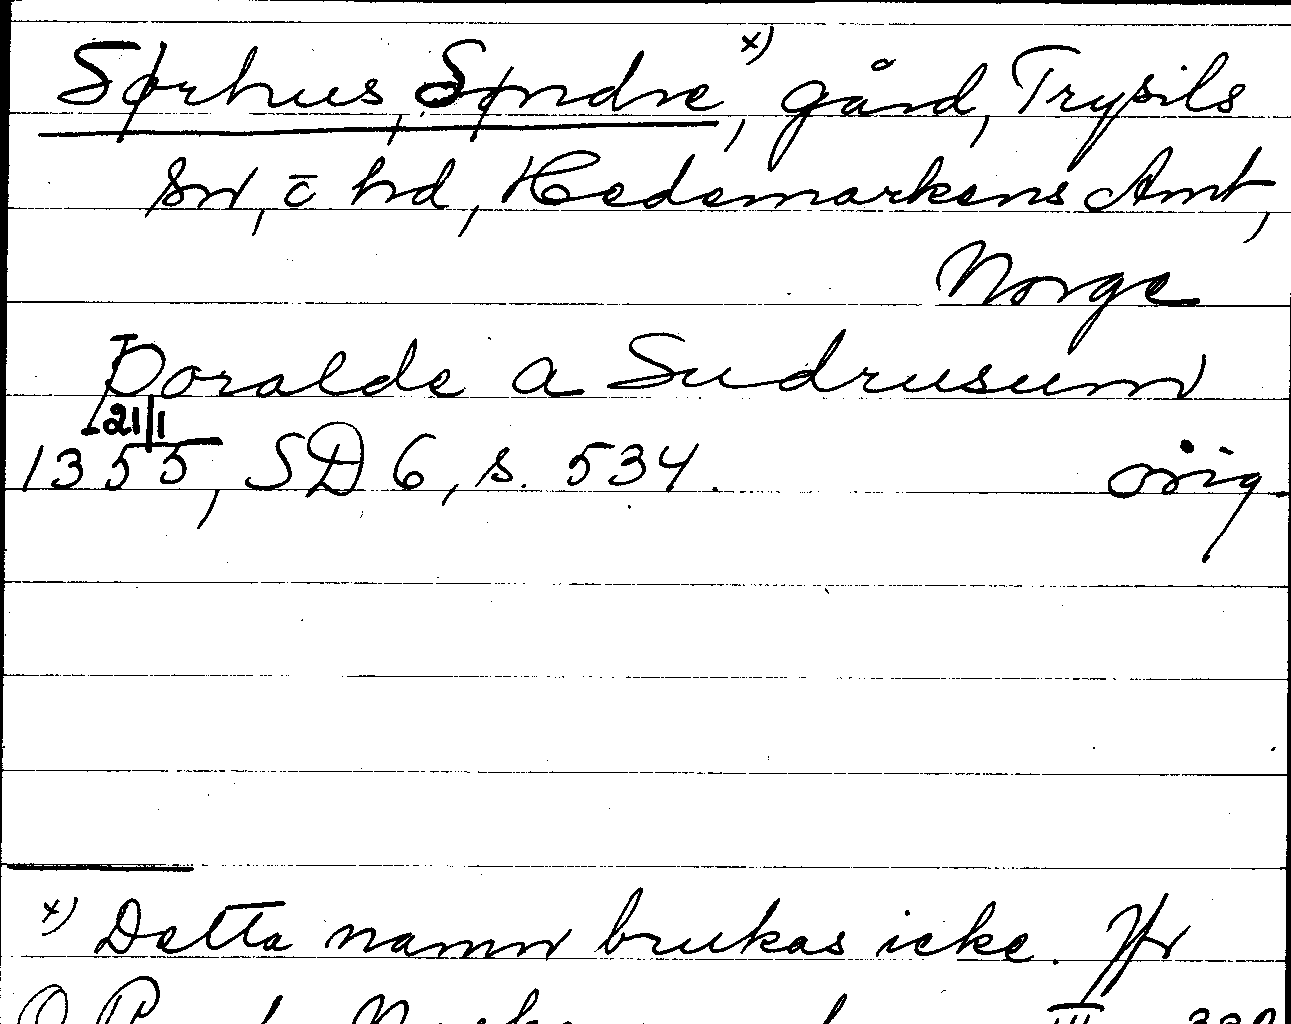 Sørhus, Søndre x), gård, Trysils
sn, o hd, Hedemarkens Amt,
Norge
Þoralde a Sudrusum
21/1
1355, SD 6, s. 534. orig.
x) Detta namn brukas icke. Jfr
O. R